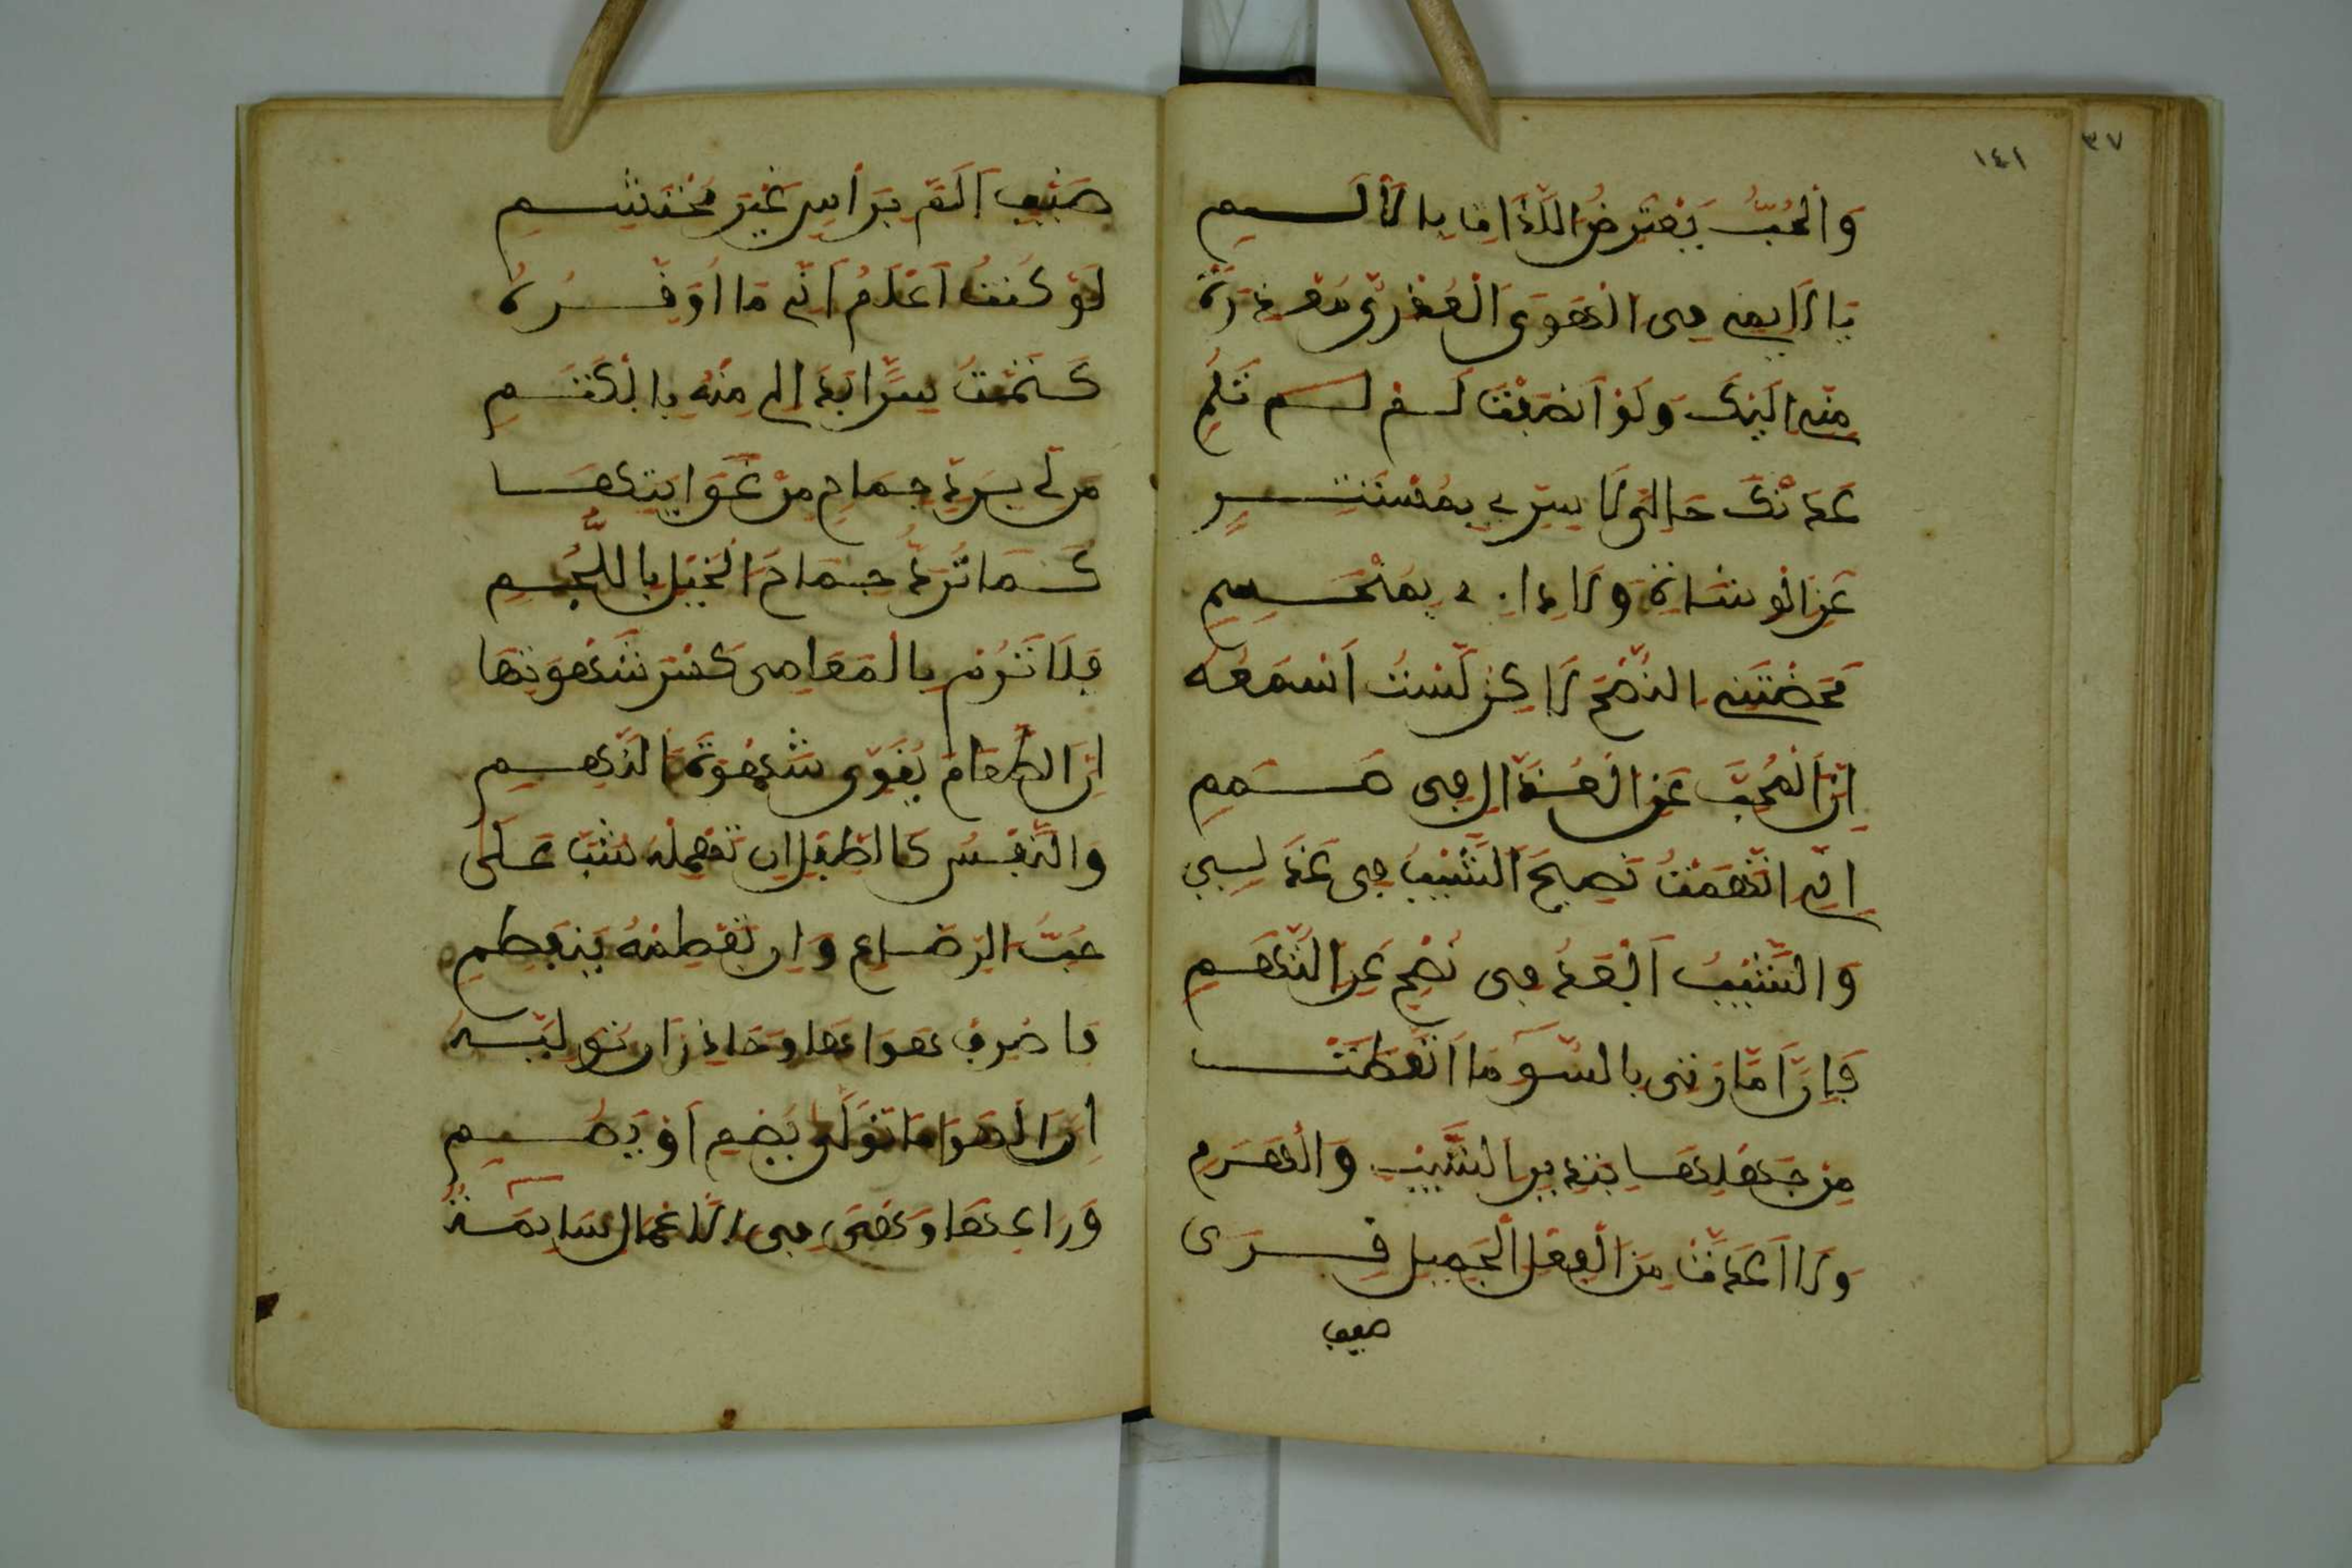 ١٤١
٣٧
وَالْحُبُّ يَعْتَرِضُ اللَّذَاتِ بِالْأَلَمِ
يَا لَايِمِي فِي الْهَوَى الْعُذْرِيِّ مَعْذِرَةً
مِنِّي إِلَيْكَ وَلَوْ أَنْصَفْتَ لَمْ تَلُمِ
عَدَتْكَ حَالِيَ لَا سِرِّي بِمُسْتَتِرٍ
عَنِ الْوُشَاةِ وَلَا دَاءِي بِمُنْحَسِمِ
مَحَضْتَنِي النُّصْحَ لَاكِنْ لَسْتُ أَسْمَعُهُ
إِنَّ الْمُحِبَّ عَنِ الْعُذَّالِ فِي صَمَمِ
إِنِّي اتَّهَمْتُ نَصِيحَ الشَّيْبِ فِي عَذَلِي
وَالشَّيْبُ أَبْعَدُ فِي نُصْحٍ عَنِ التُّهَمِ
فَإِنَّ أَمَّارَتِي بِالسُّوءِ مَا اتَّعَظَتْ
مِنْ جَهْلِهَا بِنَذِيرِ الشَّيْبِ وَالْهَرَمِ
وَلَا أَعَدَّتْ مِنَ الْفِعْلِ الْجَمِيلِ قِرَى
ضيف
ضَيْفٍ أَلَمَّ بِرَأْسِي غَيْرَ مُحْتَشِمِ
لَوْ كُنْتُ أَعْلَمُ أَنِّي مَا أُوَقِّرُهُ
كَتَمْتُ سِرًّا بَدَا لِي مِنْهُ بِالْكَتَمِ
مَنْ لِي بِرَدِّ جِمَاحٍ مِنْ غَوَايَتِهَا
كَمَا تُرَدُّ جِمَاحُ الْخَيْلِ بِاللُّجُمِ
فَلَا تَرُمْ بِالْمَعَاصِي كَسْرَ شَهْوَتِهَا
إِنَّ الطَّعَامَ يُقَوِّي شَهْوَةَ النَّهِمِ
وَالنَّفْسُ كَالطِّفْلِ إِنْ تُهْمِلْهُ شَبَّ عَلَى
حُبِّ الرَّضَاعِ وَإِنْ تَفْطِمْهُ يَنْفَطِمِ
فَاصْرِفْ هَوَاهَا وَحَاذِرْ أَنْ تُوَلِّيَهُ
إِنَّ الْهَوَا مَا تَوَلَّى يُصْمِ أَوْ يَصِمِ
وَرَاعِهَا وَهْيَ فِي الْأَعْمَالِ سَايِمَةٌ